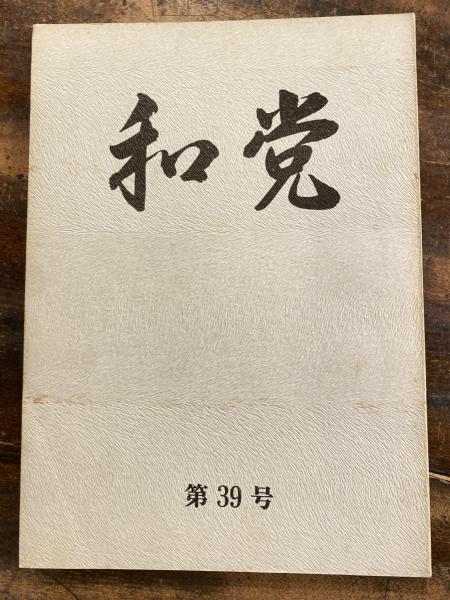 和党
第39号